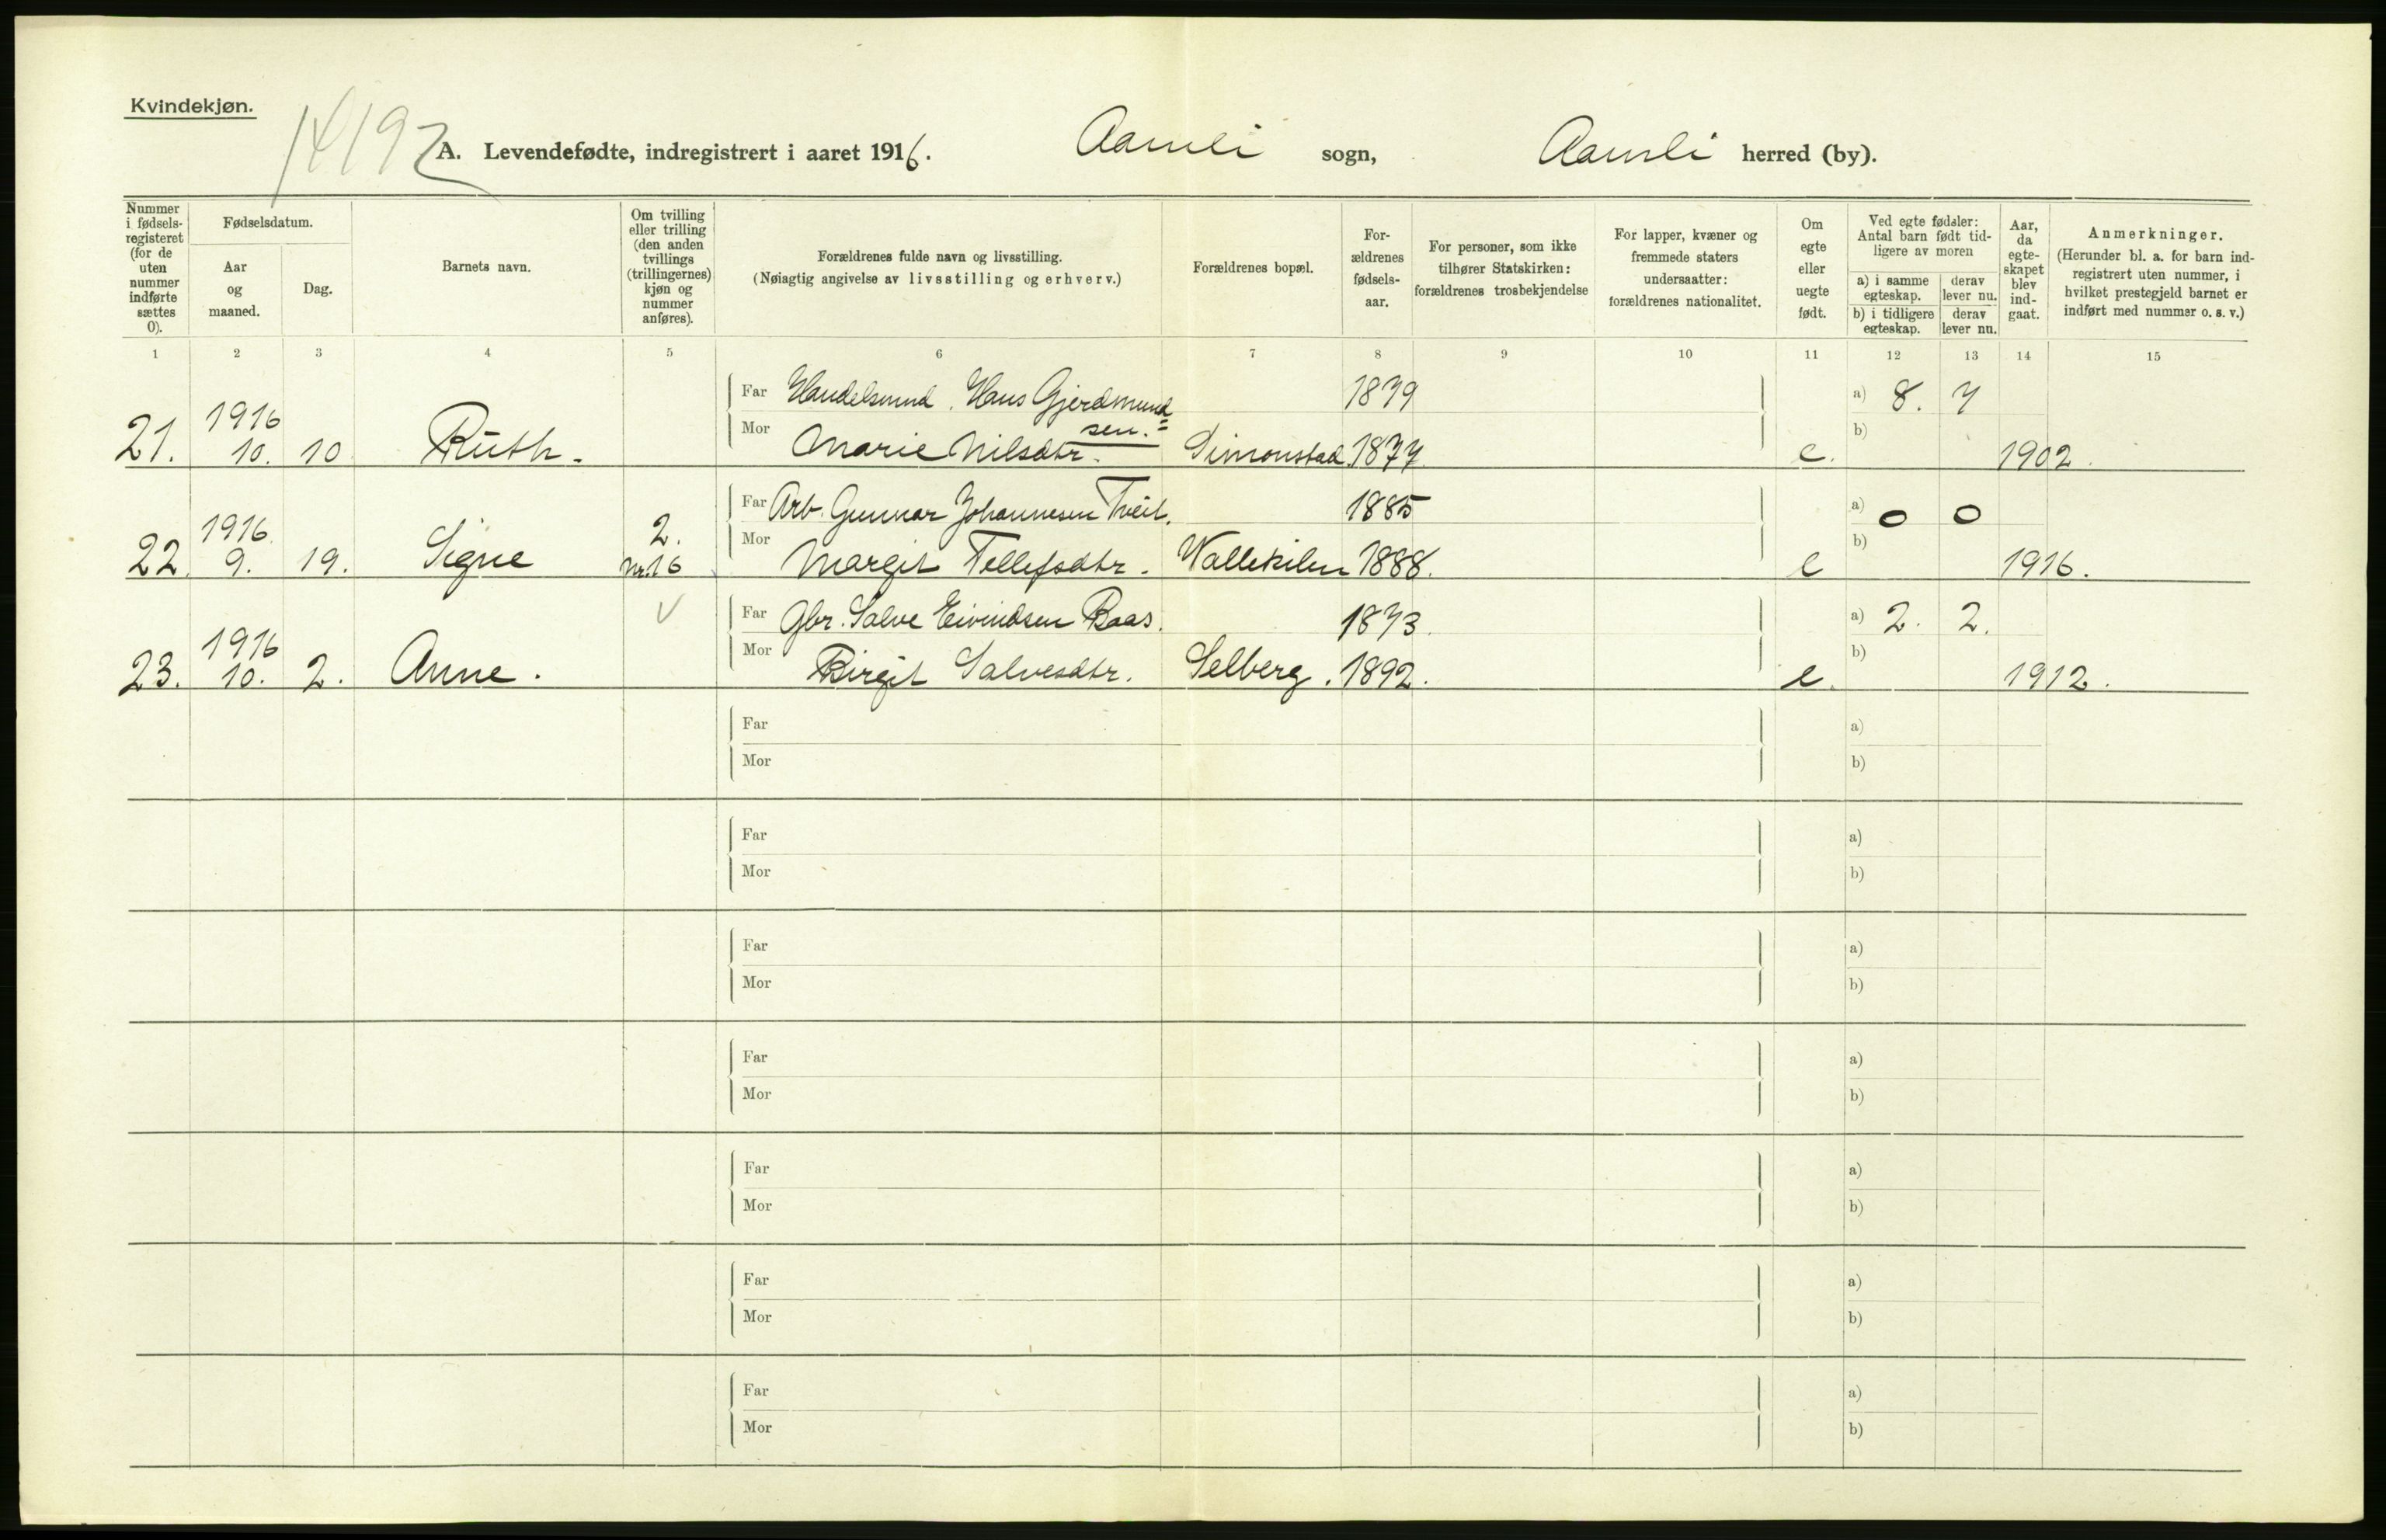 Kvindekjøn.
14192
A. Levendefødte, indregistrert i aaret 1916. Aamli sogn, Aamli herred (by).
Nummer i fødsels-registeret (for de uten nummer indførte sættes 0).
Fødselsdatum.
Aar og maaned.
Dag.
Barnets navn.
Om tvilling eller trilling (den anden tvillings (trillingernes) kjøn og nummer anføres).
Forældrenes fulde navn og livsstilling.
(Nøiagtig angivelse av livsstilling og erhverv.)
Forældrenes bopæl.
For-ældrenes fødsels-aar.
For personer, som ikke tilhører Statskirken: forældrenes trosbekjendelse
For lapper, kvæner og fremmede staters undersaatter: forældrenes nationalitet.
Om egte eller uegte født.
Ved egte fødsler: Antal barn født tid-ligere av moren
a) i samme egteskap. derav lever nu.
b) i tidligere egteskap. derav lever nu.
Aar, da egte-skapet blev ind-gaat.
Anmerkninger.
(Herunder bl. a. for barn ind-registrert uten nummer, i hvilket prestegjeld barnet er indført med nummer o. s. v.)
1 2 3 4 5 6 7 8 9 10 11 12 13 14 15
Far Handelsmnd. Hans Gjerdmund= 1879 a) 8. 7
sen.
21. 1916 10. 10 Ruth. Mor Marie Nilsdtr. Simonstad 1877 e. b) 1902.
Far Arb. Gunnar Johannesen Tveit. 1885 a) 0 0
22. 1916. 9. 19. Signe 2. Nr. 16 Mor Margit Tellefsdtr. Wallekilen 1888. e b) 1916.
V Far Gbr. Salve Eivindsen Raas. 1873. a) 2. 2.
23. 1916 10. 2. Anne. Mor Birgit Salvesdtr. Selberg. 1892. e. b) 1912.
Far a)
Mor b)
Far a)
Mor b)
Far a)
Mor b)
Far a)
Mor b)
Far a)
Mor b)
Far a)
Mor b)
Far a)
Mor b)